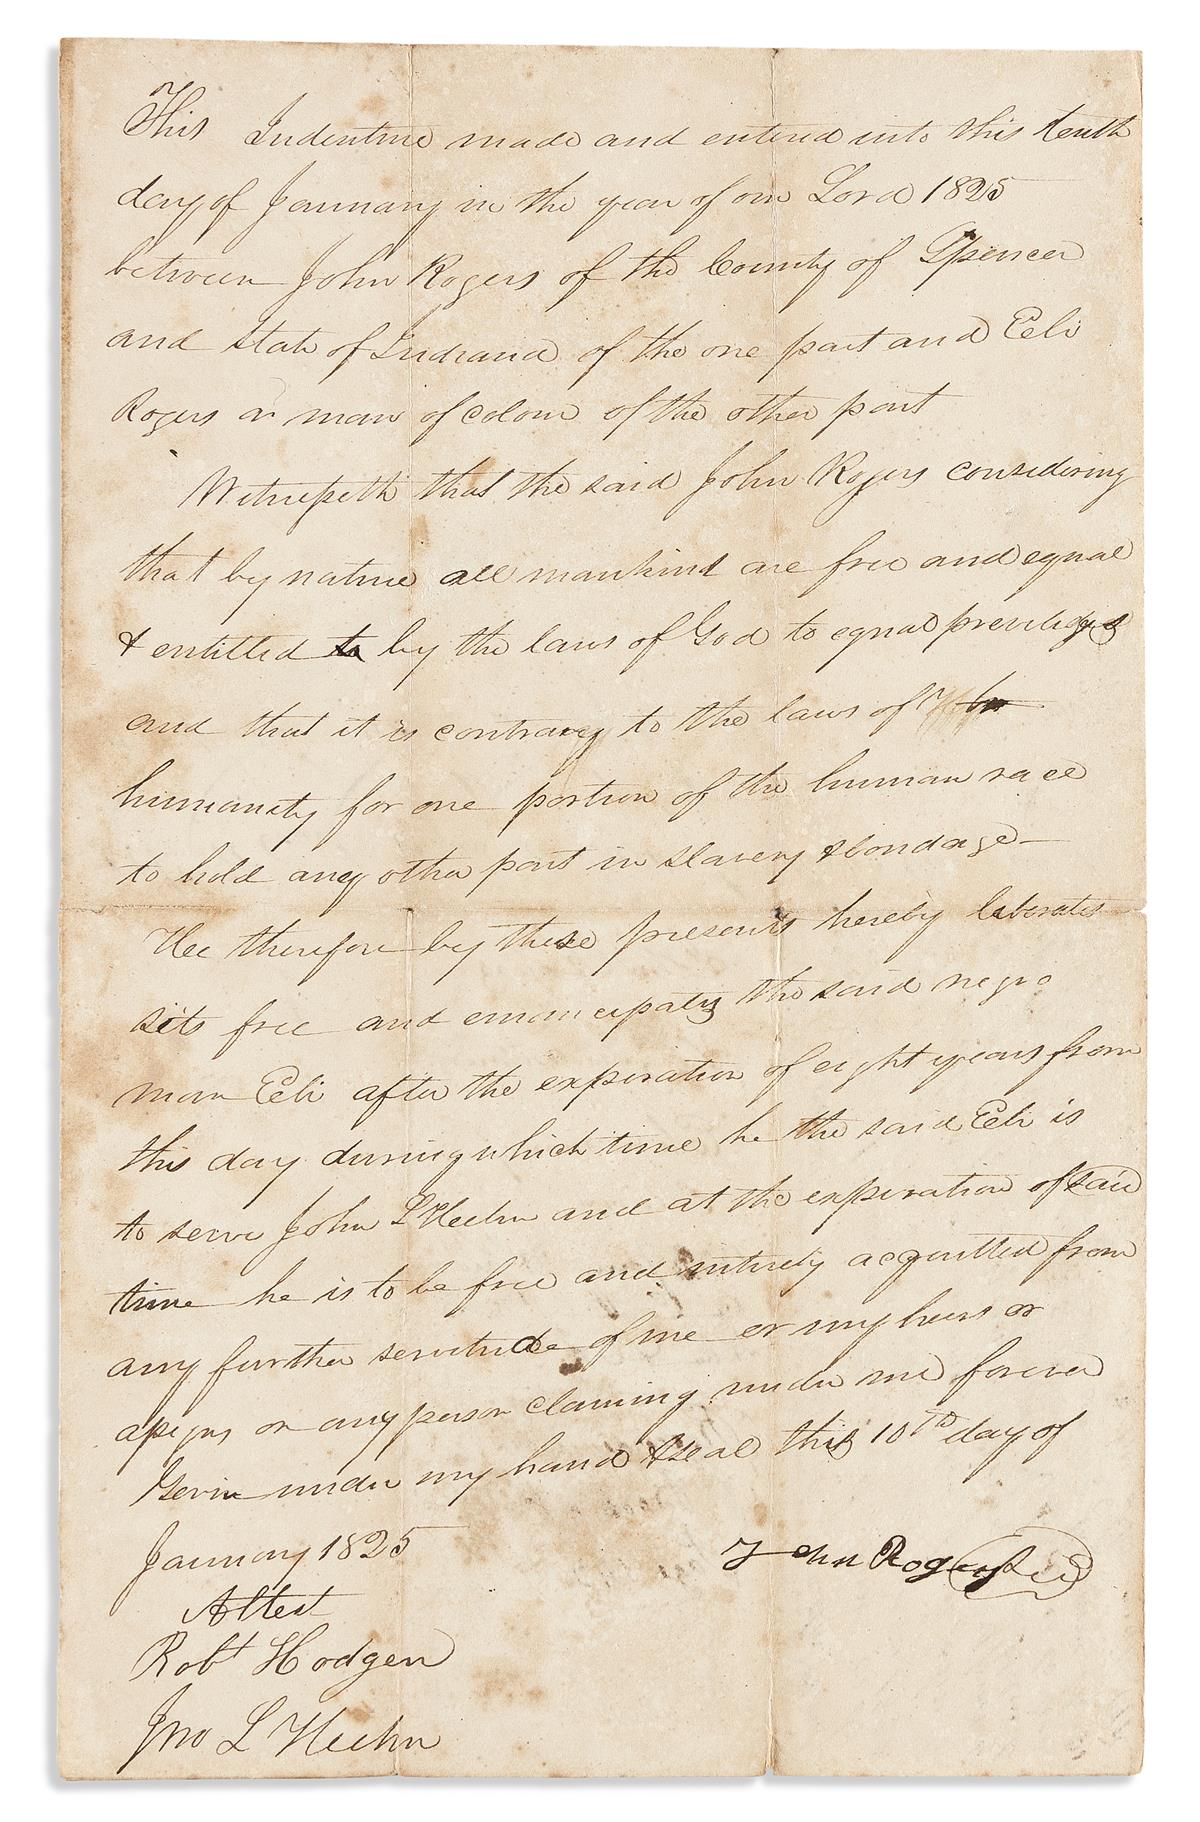 This Indenture made and entered into this tenth
day of January in the year of our Lord 1825
between John Rogers of the County of Spencer
and State of Indiana of the one part and Eeli
Rogers a man of colour of the other part
Witnesseth that the said John Rogers considering
that by nature all mankind are free and equal
& entitled to by the laws of God to equal previledges
and that it is contrary to the laws of
humanity for one portion of the human race
to hold any other part in slavery & bondage
Hee therefore by these presents hereby liberates
sets free and emancipates the said negro
man Eeli after the expiration of eight years from
this day during which time he the said Eeli is
to serve John L Heehn and at the expiration of said
time he is to be free and intirely acquitted from
any further servitude of me or my heirs or
assigns or any person claiming under me forever
Given under my hand & seal this 10th day of
January 1825
John Rogers
Attest
Robt Hodgen
Jno L Heehn